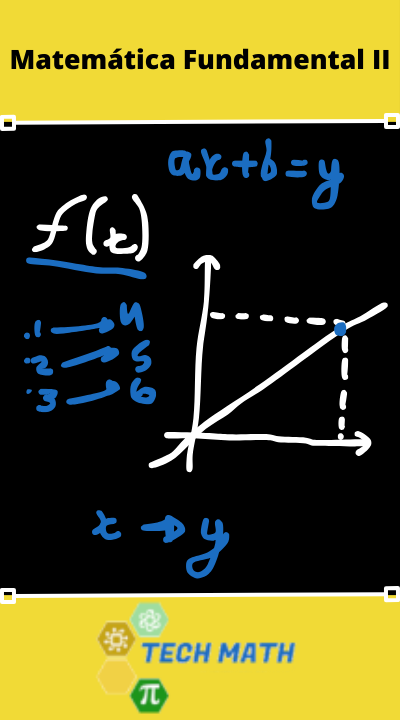 Matemática Fundamental II
ax+b=y
f(x)
.1 → 4
.2 → 5
.3 → 6
x → y
π
TECH MATH